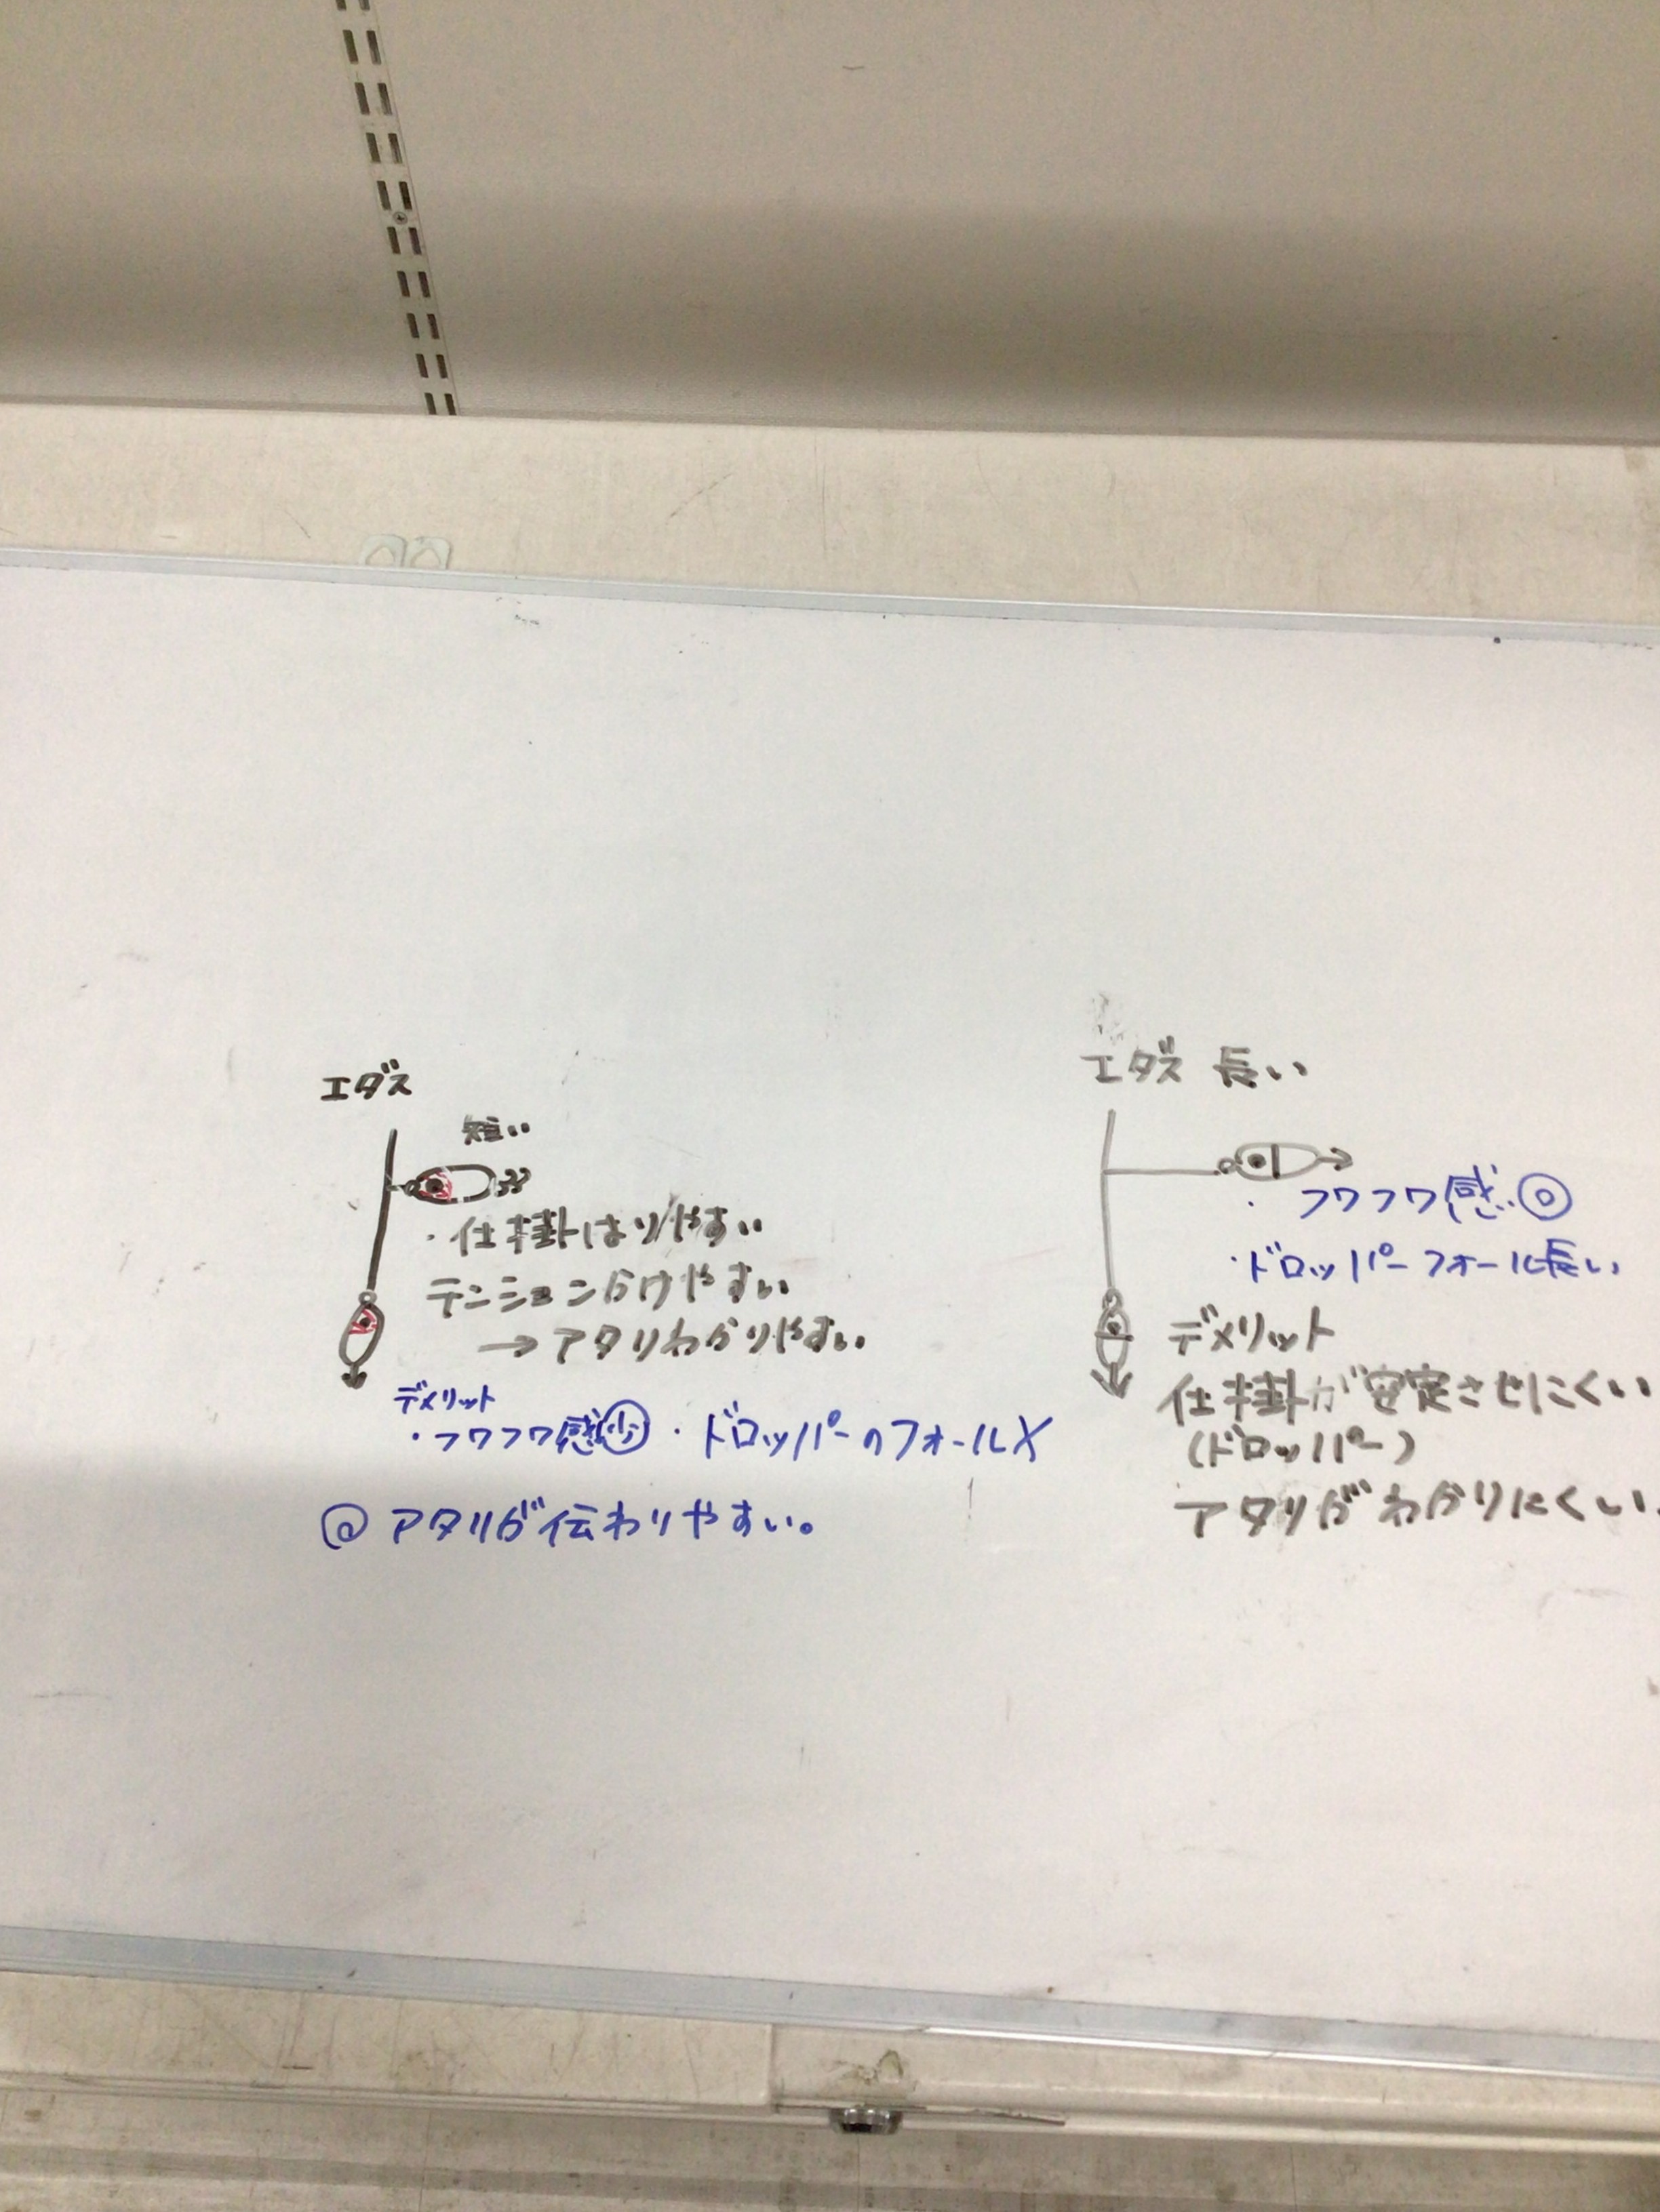 エダス
短い
・仕掛はりやすい
テンションかけやすい
→アタリわかりやすい
デメリット
・フワフワ感少 ・ドロッパーのフォール✕
◎ アタリが伝わりやすい。
エダス 長い
・フワフワ感◎
・ドロッパーフォール長い
デメリット
仕掛が安定させにくい
(ドロッパー)
アタリがわかりにくい.